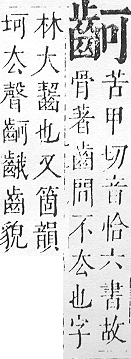 齣
苦甲切音恰六書故
骨著齒間不厺也字
林大齧也又箇韻
坷厺聲齣齹齒貌